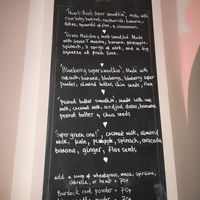 "Heart-Beet super smoothie", made with
rice milk, beetroot, raspberries, banana,
dates, spoonful of flax, & cinnamon.
"Green Matcha & milk smoothie". Made
with green T matcha, banana, pineapple,
spinach, 2 sprigs of mint, and a big
squeeze of fresh lime.
"Blueberry supersmoothie", Made with
oat milk, banana, blueberries, blueberry super
powder, almond butter, chia seeds, flax
"Peanut butter smoothie", made with
milk, coconut milk, medjool dates, banana
peanut butter & chia seeds
"Super green one!", coconut milk, almond
milk, kale, pineapple, spinach, avocado,
banana, ginger, flax seeds.
add a scoop of wheatgrass, maca, spirulina,
chlorella, or hemp + 70p
Burdock root powder + 70p
powder + 70p